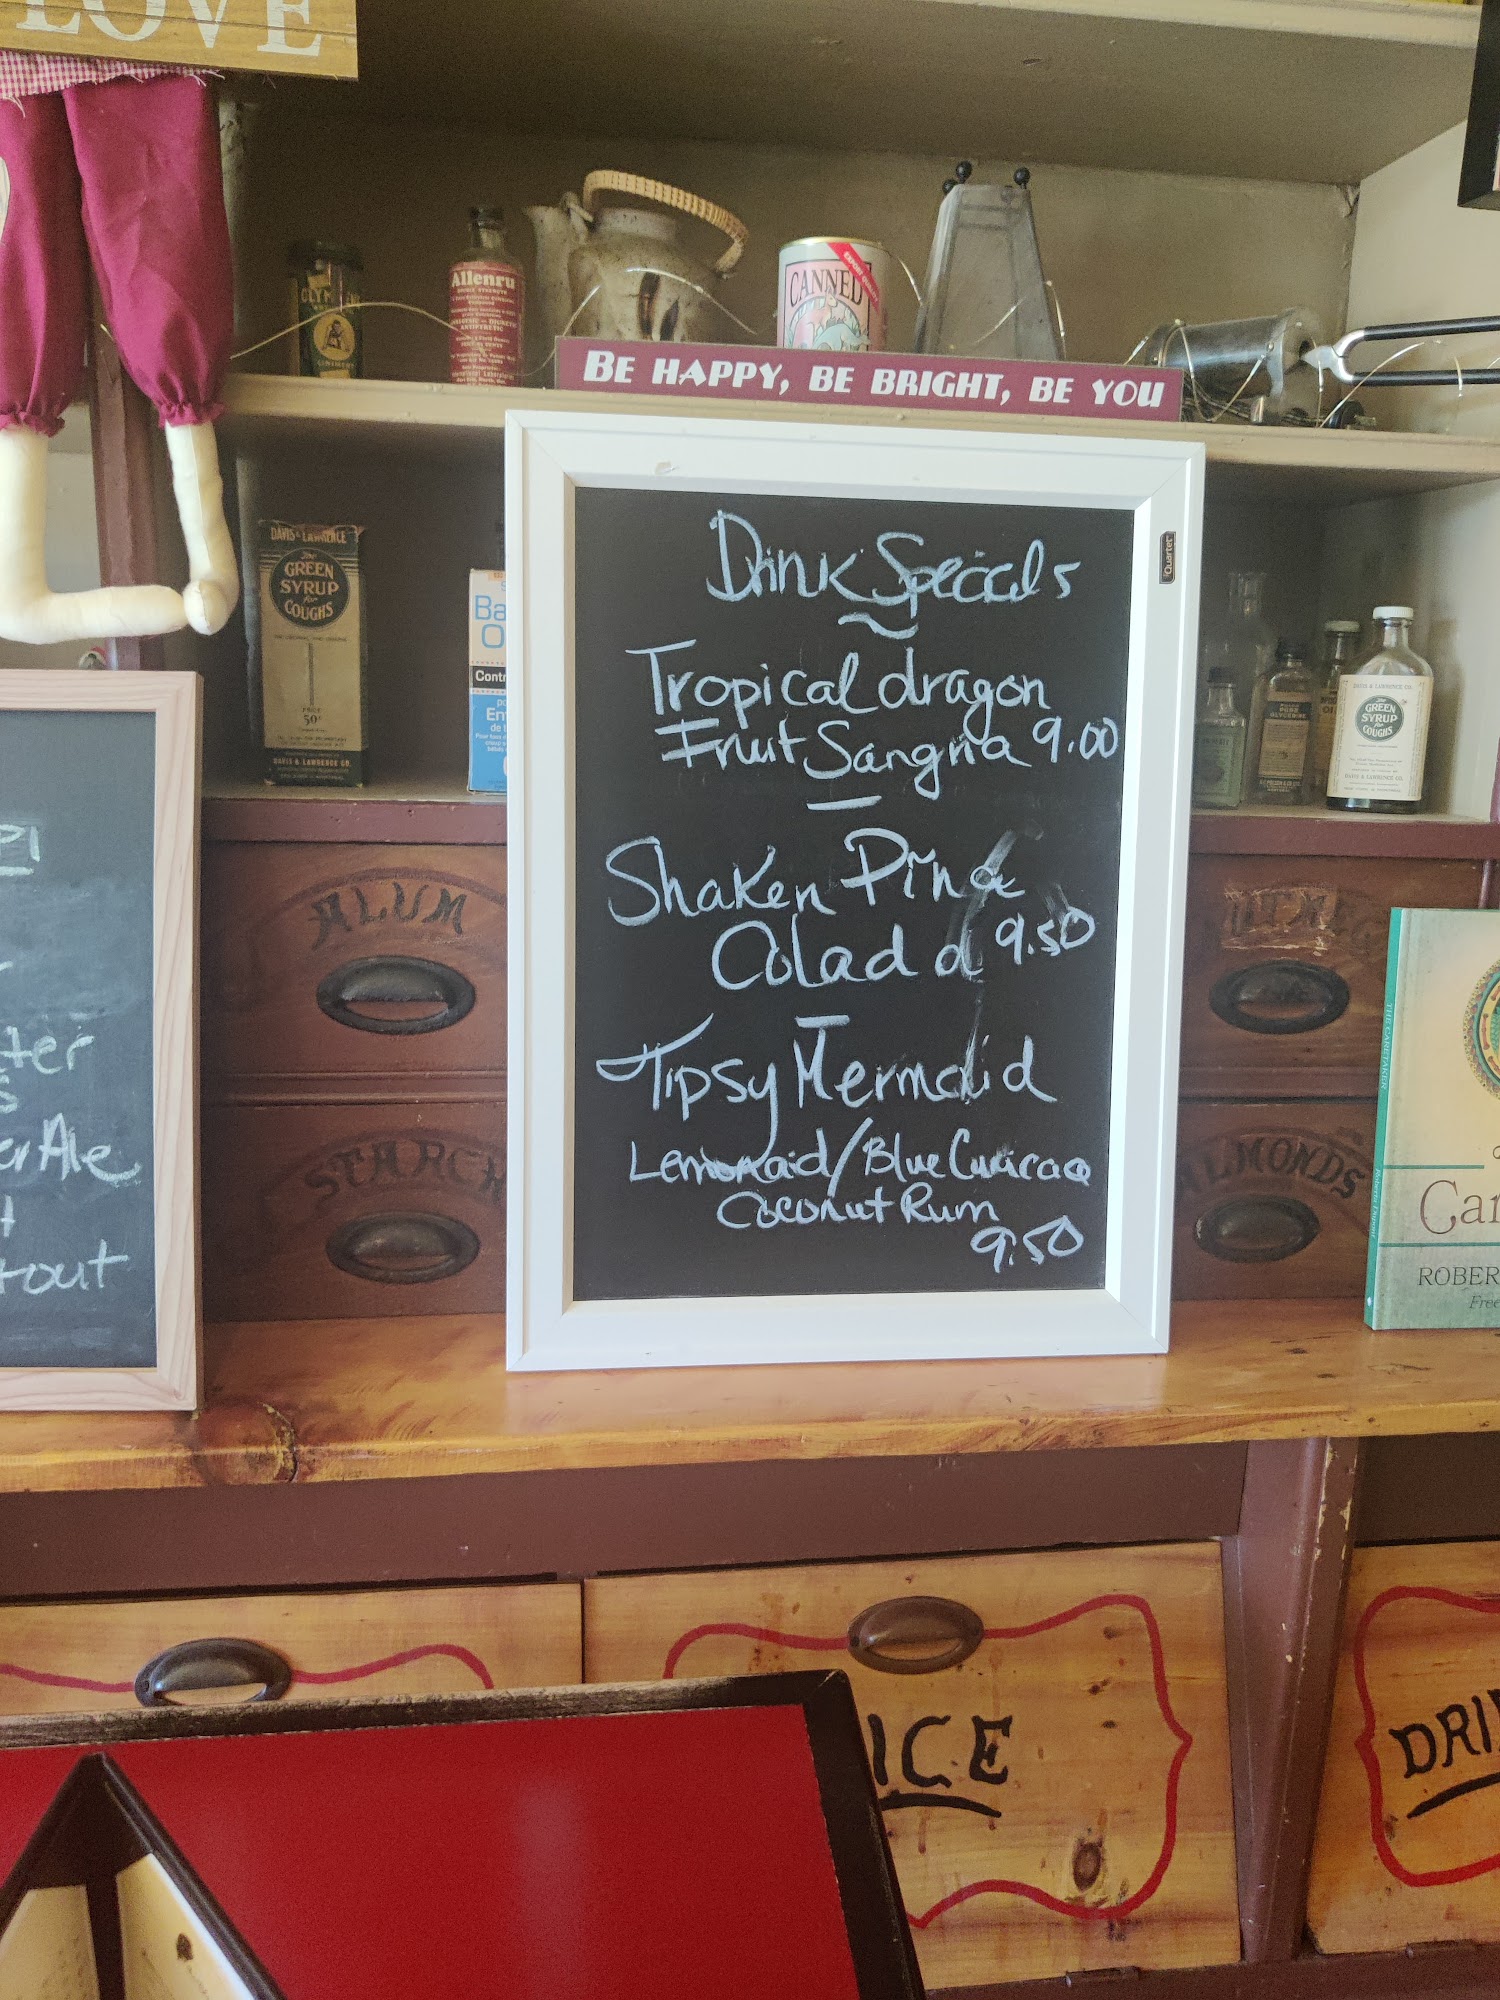 LOVE
Allenru
CANNED
BE HAPPY, BE BRIGHT, BE YOU
DAVIS & LAWRENCE
The
GREEN
SYRUP
for
COUGHS
PRICE
50¢
DAVIS & LAWRENCE CO.
Quartet
Drink Specials
Tropical dragon
Fruit Sangria 9.00
Shaken Piña
Colada 9.50
Tipsy Mermaid
Lemonaid/Blue Curacao
Coconut Rum
9.50
DAVIS & LAWRENCE CO.
The
GREEN
SYRUP
for
COUGHS
ALUM
STARCH
ALMONDS
er Ale
tout
THE CARETAKER
Car
ROBER
Free
ICE
DRI